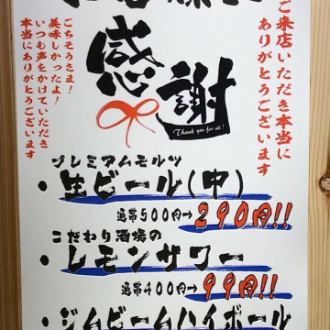 ご来店いただき本当に
ありがとうございます
感謝
Thank you for all!
ごちそうさま!
美味しかったよ!
いつも声をかけていただき
本当にありがとうございます
プレミアムモルツ
・生ビール(中)
通常500円→290円!!
こだわり酒場の
・レモンサワー
通常400円→99円!!
・ジムビームハイボール